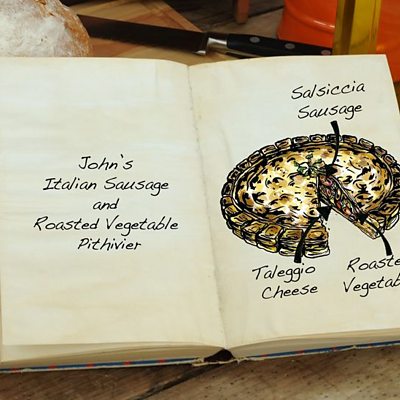 John's
Italian Sausage
and
Roasted Vegetable
Pithivier
Salsiccia
Sausage
Taleggio
Cheese
Roaste
Vegetab